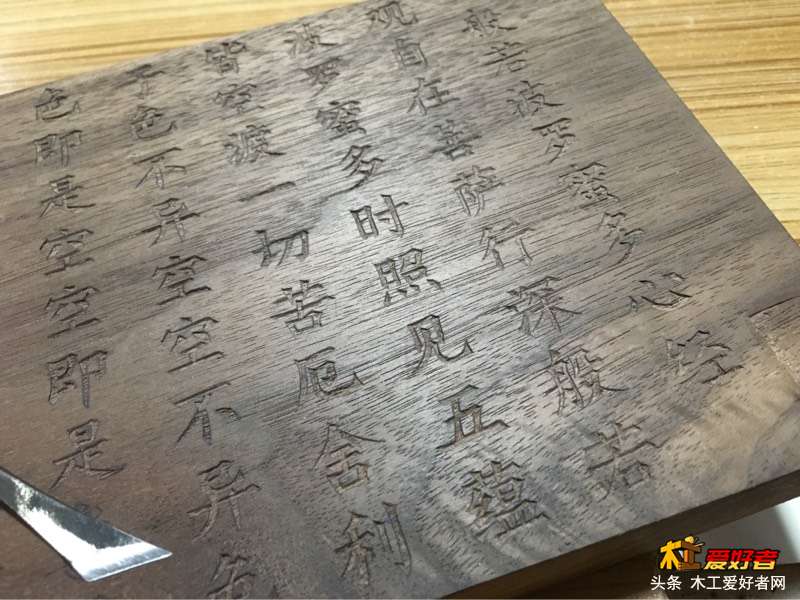 般若波罗蜜多心经
观自在菩萨行深般若
波罗蜜多时照见五蕴
皆空渡一切苦厄舍利
子色不异空空不异色
色即是空空即是
木工爱好者
头条 木工爱好者网